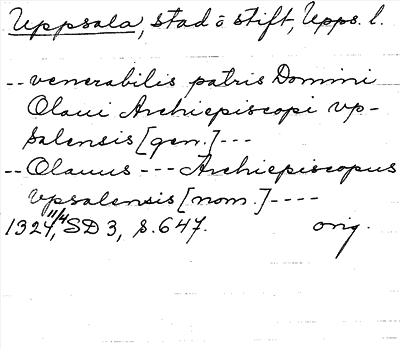 Uppsala, stad o stift, Upps. l.
-- venerabilis patris Domini
Olaui Archiepiscopi vp-
salensis [gen.] ---
-- Olauus --- Archiepiscopus
vpsalensis [nom.] ----
1324 11/4, SD 3, s. 647. orig.